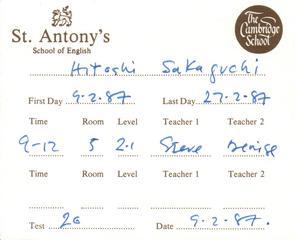 St. Antony's
School of English
The
Cambridge
School
Hitoshi Sakaguchi
First Day 9.2.87 Last Day 27.2.87
Time Room Level Teacher 1 Teacher 2
9-12 5 2.1 Steve Denise
Time Room Level Teacher 1 Teacher 2
Test 26 Date 9.2.87.